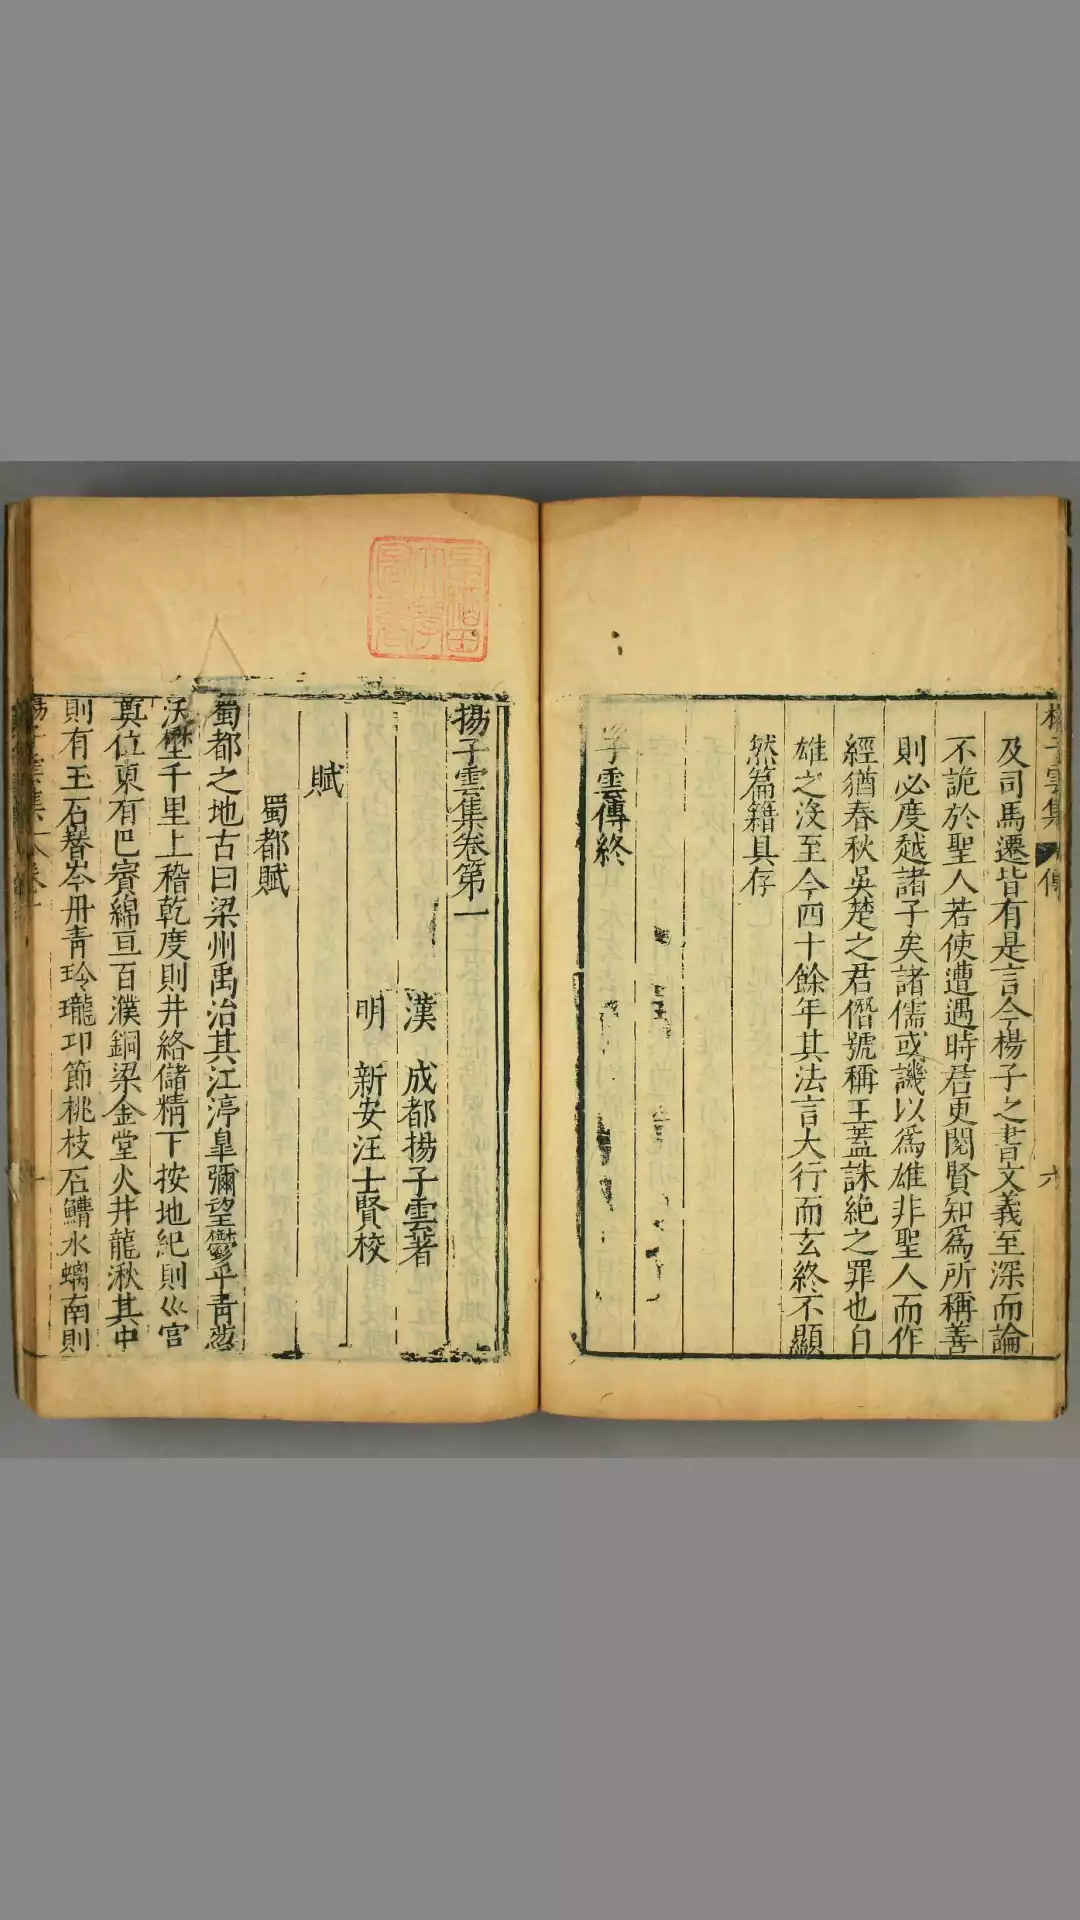 及司馬遷皆有是言今楊子之書文義至深而論
不詭於聖人若使遭遇時君更閱賢知為所稱善
則必度越諸子矣諸儒或譏以爲雄非聖人而作
經猶春秋吳楚之君僭號稱王蓋誅絶之罪也自
雄之沒至今四十餘年其法言大行而玄終不顯
然篇籍具存
子雲傳終
揚子雲集卷第一
漢 成都揚子雲著
明 新安汪士賢校
賦
蜀都賦
蜀都之地古曰梁州禹治其江渟皐彌望鬱乎青葱
沃壄千里上稽乾度則井絡儲精下按地紀則巛宮
奠位東有巴賨綿亘百濮銅梁金堂火井龍湫其中
則有玉石嶜岑丹青玲瓏邛節桃枝石鱛水螭南則